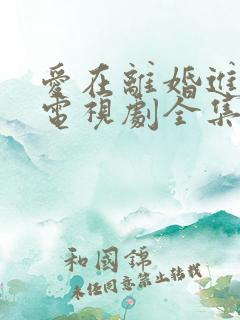 愛在離婚進
電視劇全集
和國錦
未经同意禁止转载